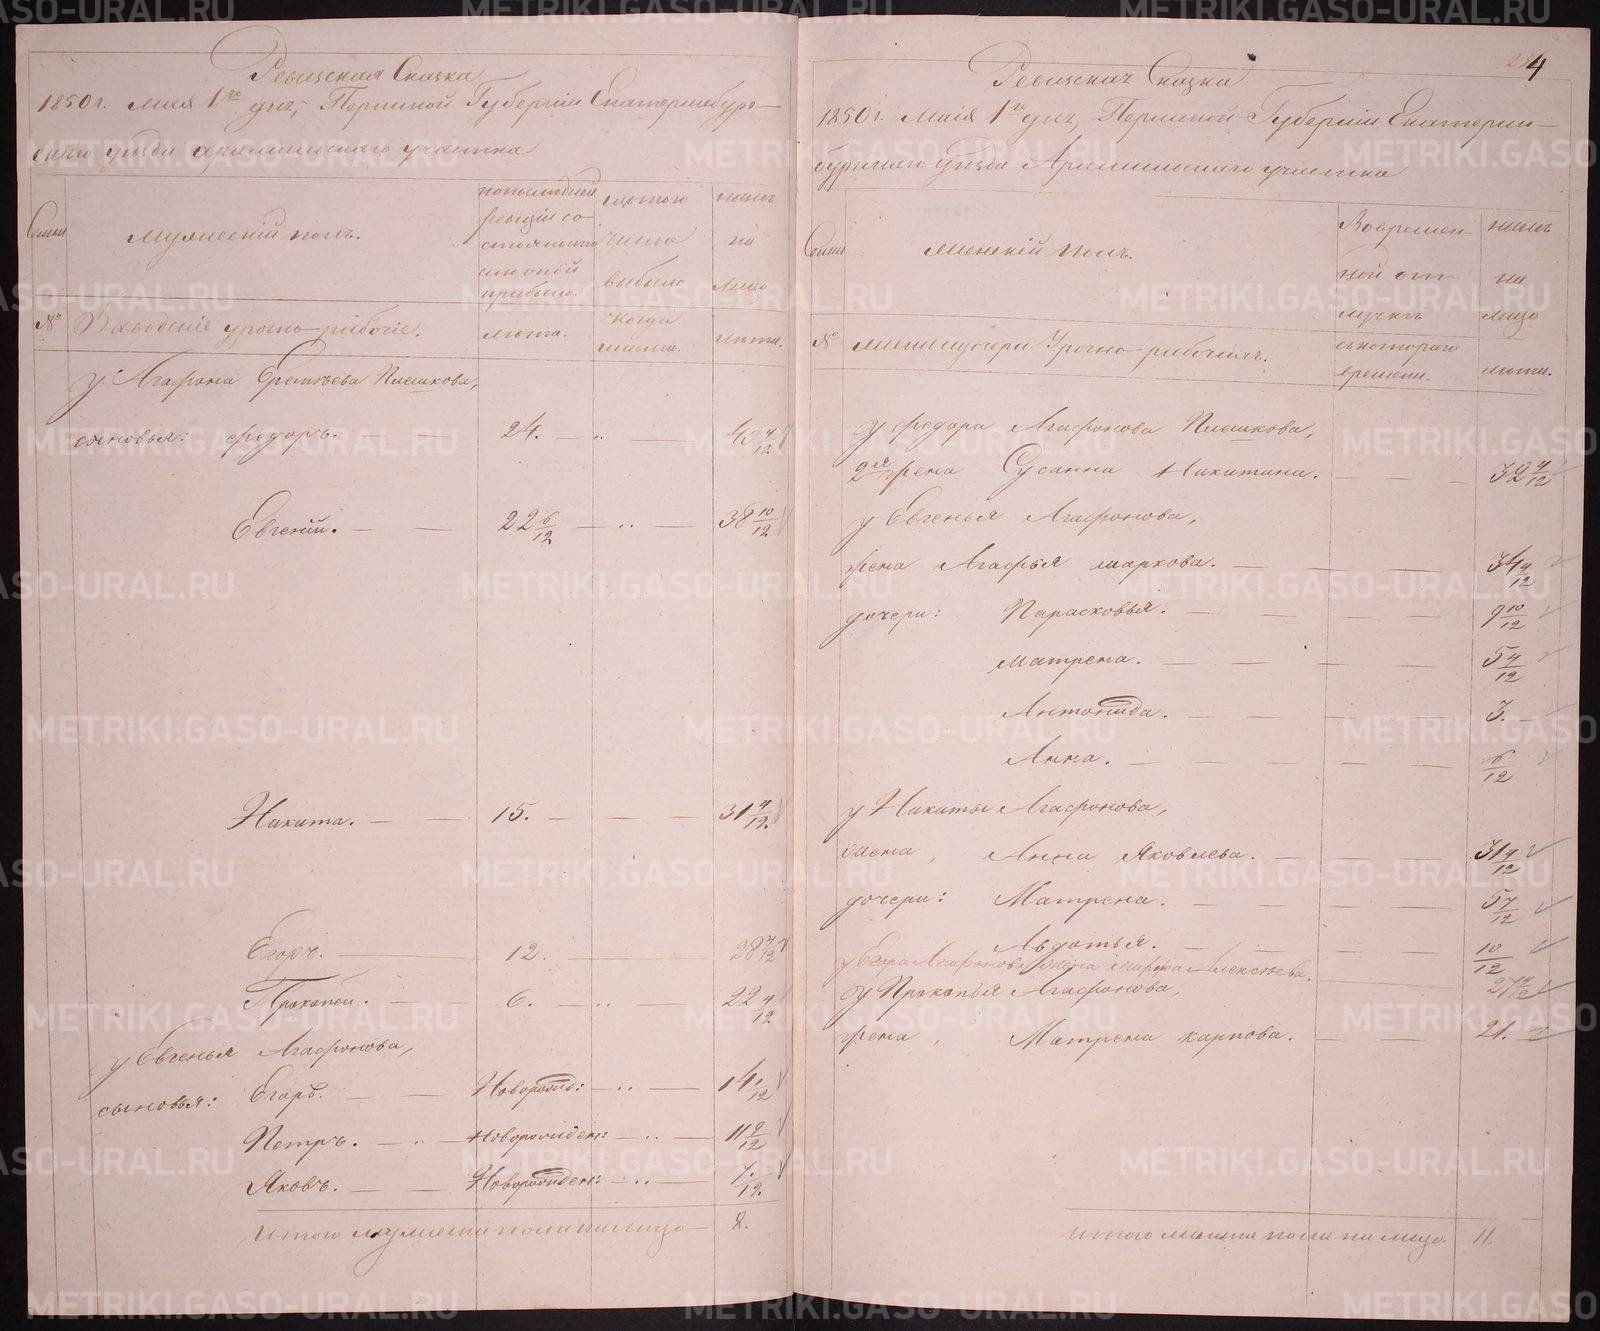 Ревизская Сказка
1850 г. Мая 1го дня, Пермской Губернии Екатеринбург-
скаго уезда Арамильскаго участка
Семьи
Мужескій полъ.
по последней ревизіи состояло и после оной прибыло.
изъ того числа выбыло
ныне на лицо
№
заводскіе урочно-рабочіе.
лета.
Когда именно.
лета.
у Агафона Еремеева Плешкова,
сыновья: Федоръ. 24. „ 40 4/12
Евгеній. 22 6/12 „ 38 10/12
Никита. 15. 31 4/12
Егоръ. 12. 28 4/12
Прокопей. 6. „ 22 4/12
у Евгенья Агафонова,
сыновья: Егоръ. Новорожд: „ 14 1/12
Петръ. „ Новорожден: „ 11 9/12
Яковъ. Новорожден: „ 7/12
Итого мужеска пола на лицо 8.
Ревизская Сказка
4
1850 г. Маія 1го дня, Пермской Губерніи Екатерин-
бургскаго уезда Арамильскаго участка
Семьи
Женскій полъ.
Во временной отлучке
ныне на лицо
№
жены и дочери Урочно рабочихъ.
съ котораго времени.
лета.
у Федора Агафонова Плешкова,
2я жена Сусанна Никитина. 39 4/12
у Евгенья Агафонова,
жена Агафья Маркова. 34 4/12
дочери: Парасковья. 9 10/12
Матрена. 5 4/12
Антонида. 3.
Анна. 6/12
у Никиты Агафонова,
жена, Анна Яковлева. 31 4/12
дочери: Матрена. 5 7/12
Авдотья. 10/12
у Егора Агафонова жена Марфа Алексеева. 27 4/12
у Прокопья Агафонова,
жена, Матрена Карпова. 21.
Итого женска пола на лицо. 11.
METRIKI.GASO-URAL.RU